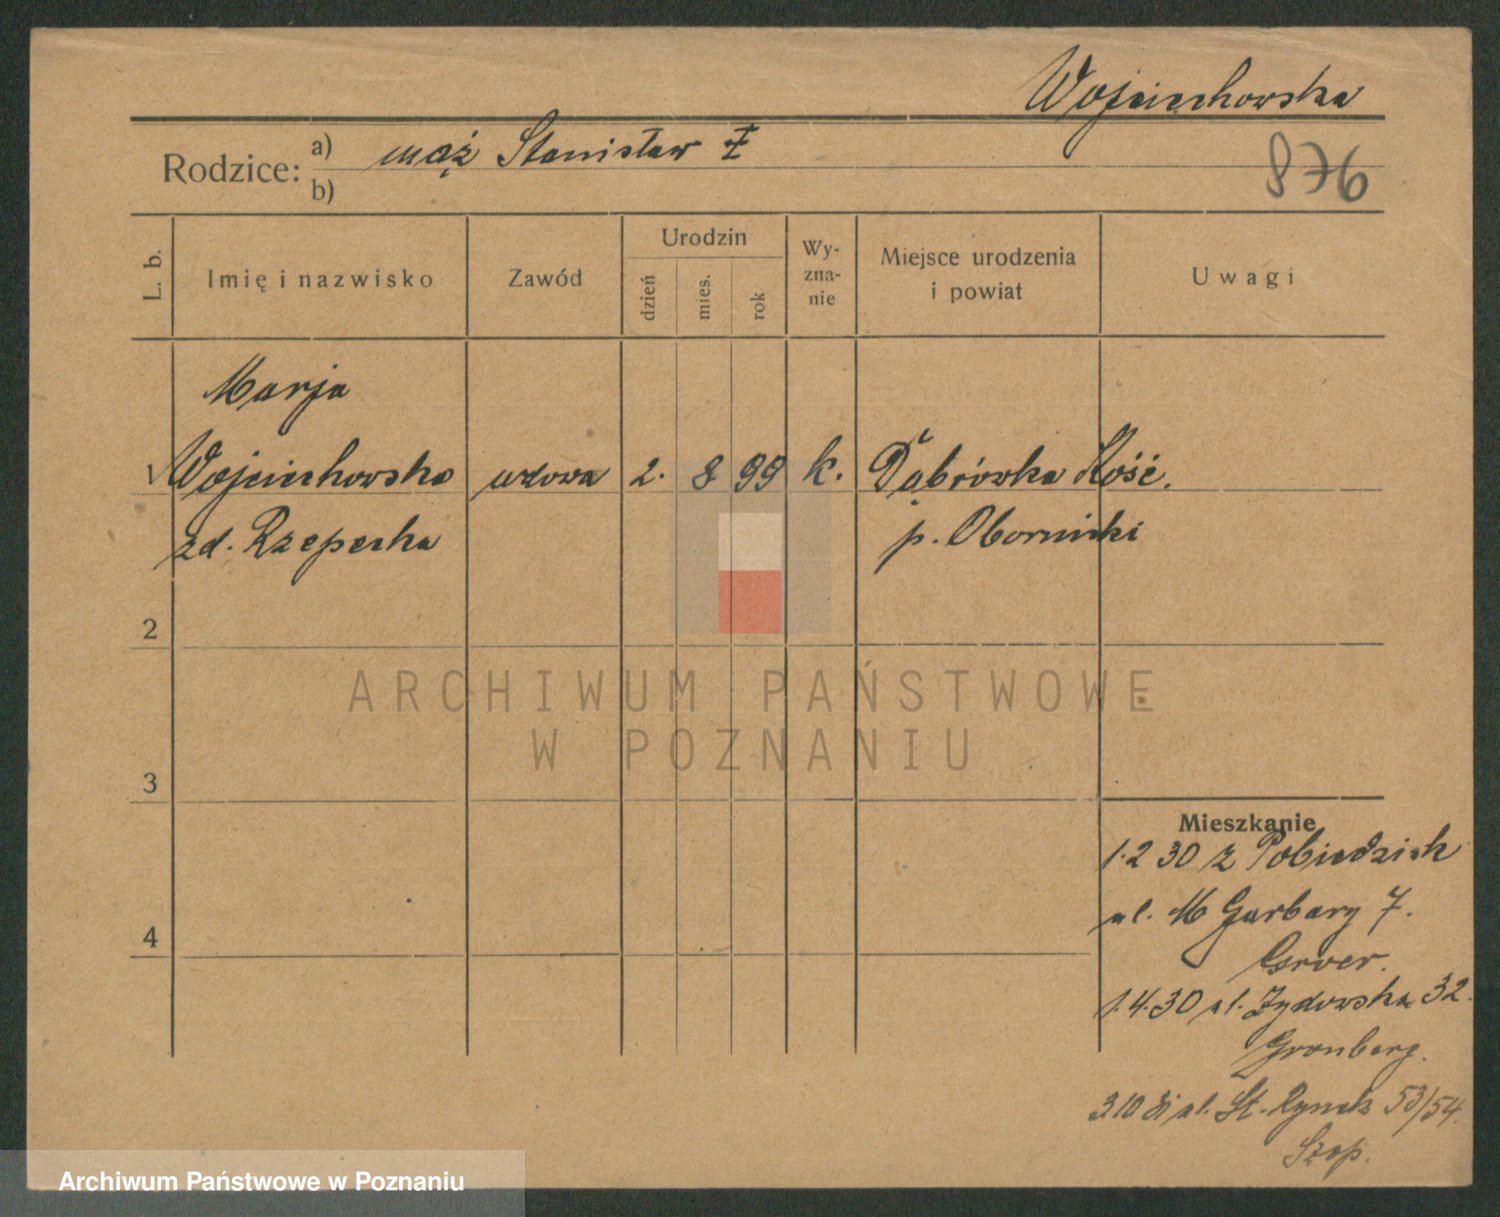 Wojciechowska
Rodzice: a) mąż Stanisław ‡
b)
876
L. b.
Imię i nazwisko
Zawód
Urodzin
dzień
mies.
rok
Wy-
zna-
nie
Miejsce urodzenia
i powiat
Uwagi
Marja
1 Wojciechowska wdowa 2. 8 99 k. Dąbrówka Kość.
zd. Rzepecka p. Obornicki
2
ARCHIWUM PAŃSTWOWE
W POZNANIU
3
Mieszkanie
1.2 30 z Pobiedzisk
ul. M Garbary 7.
4
1.4.30 ul. Żydowska 32.
Gronberg.
3 10 31 ul. St. Rynek 53/54.
Szop.
Archiwum Państwowe w Poznaniu